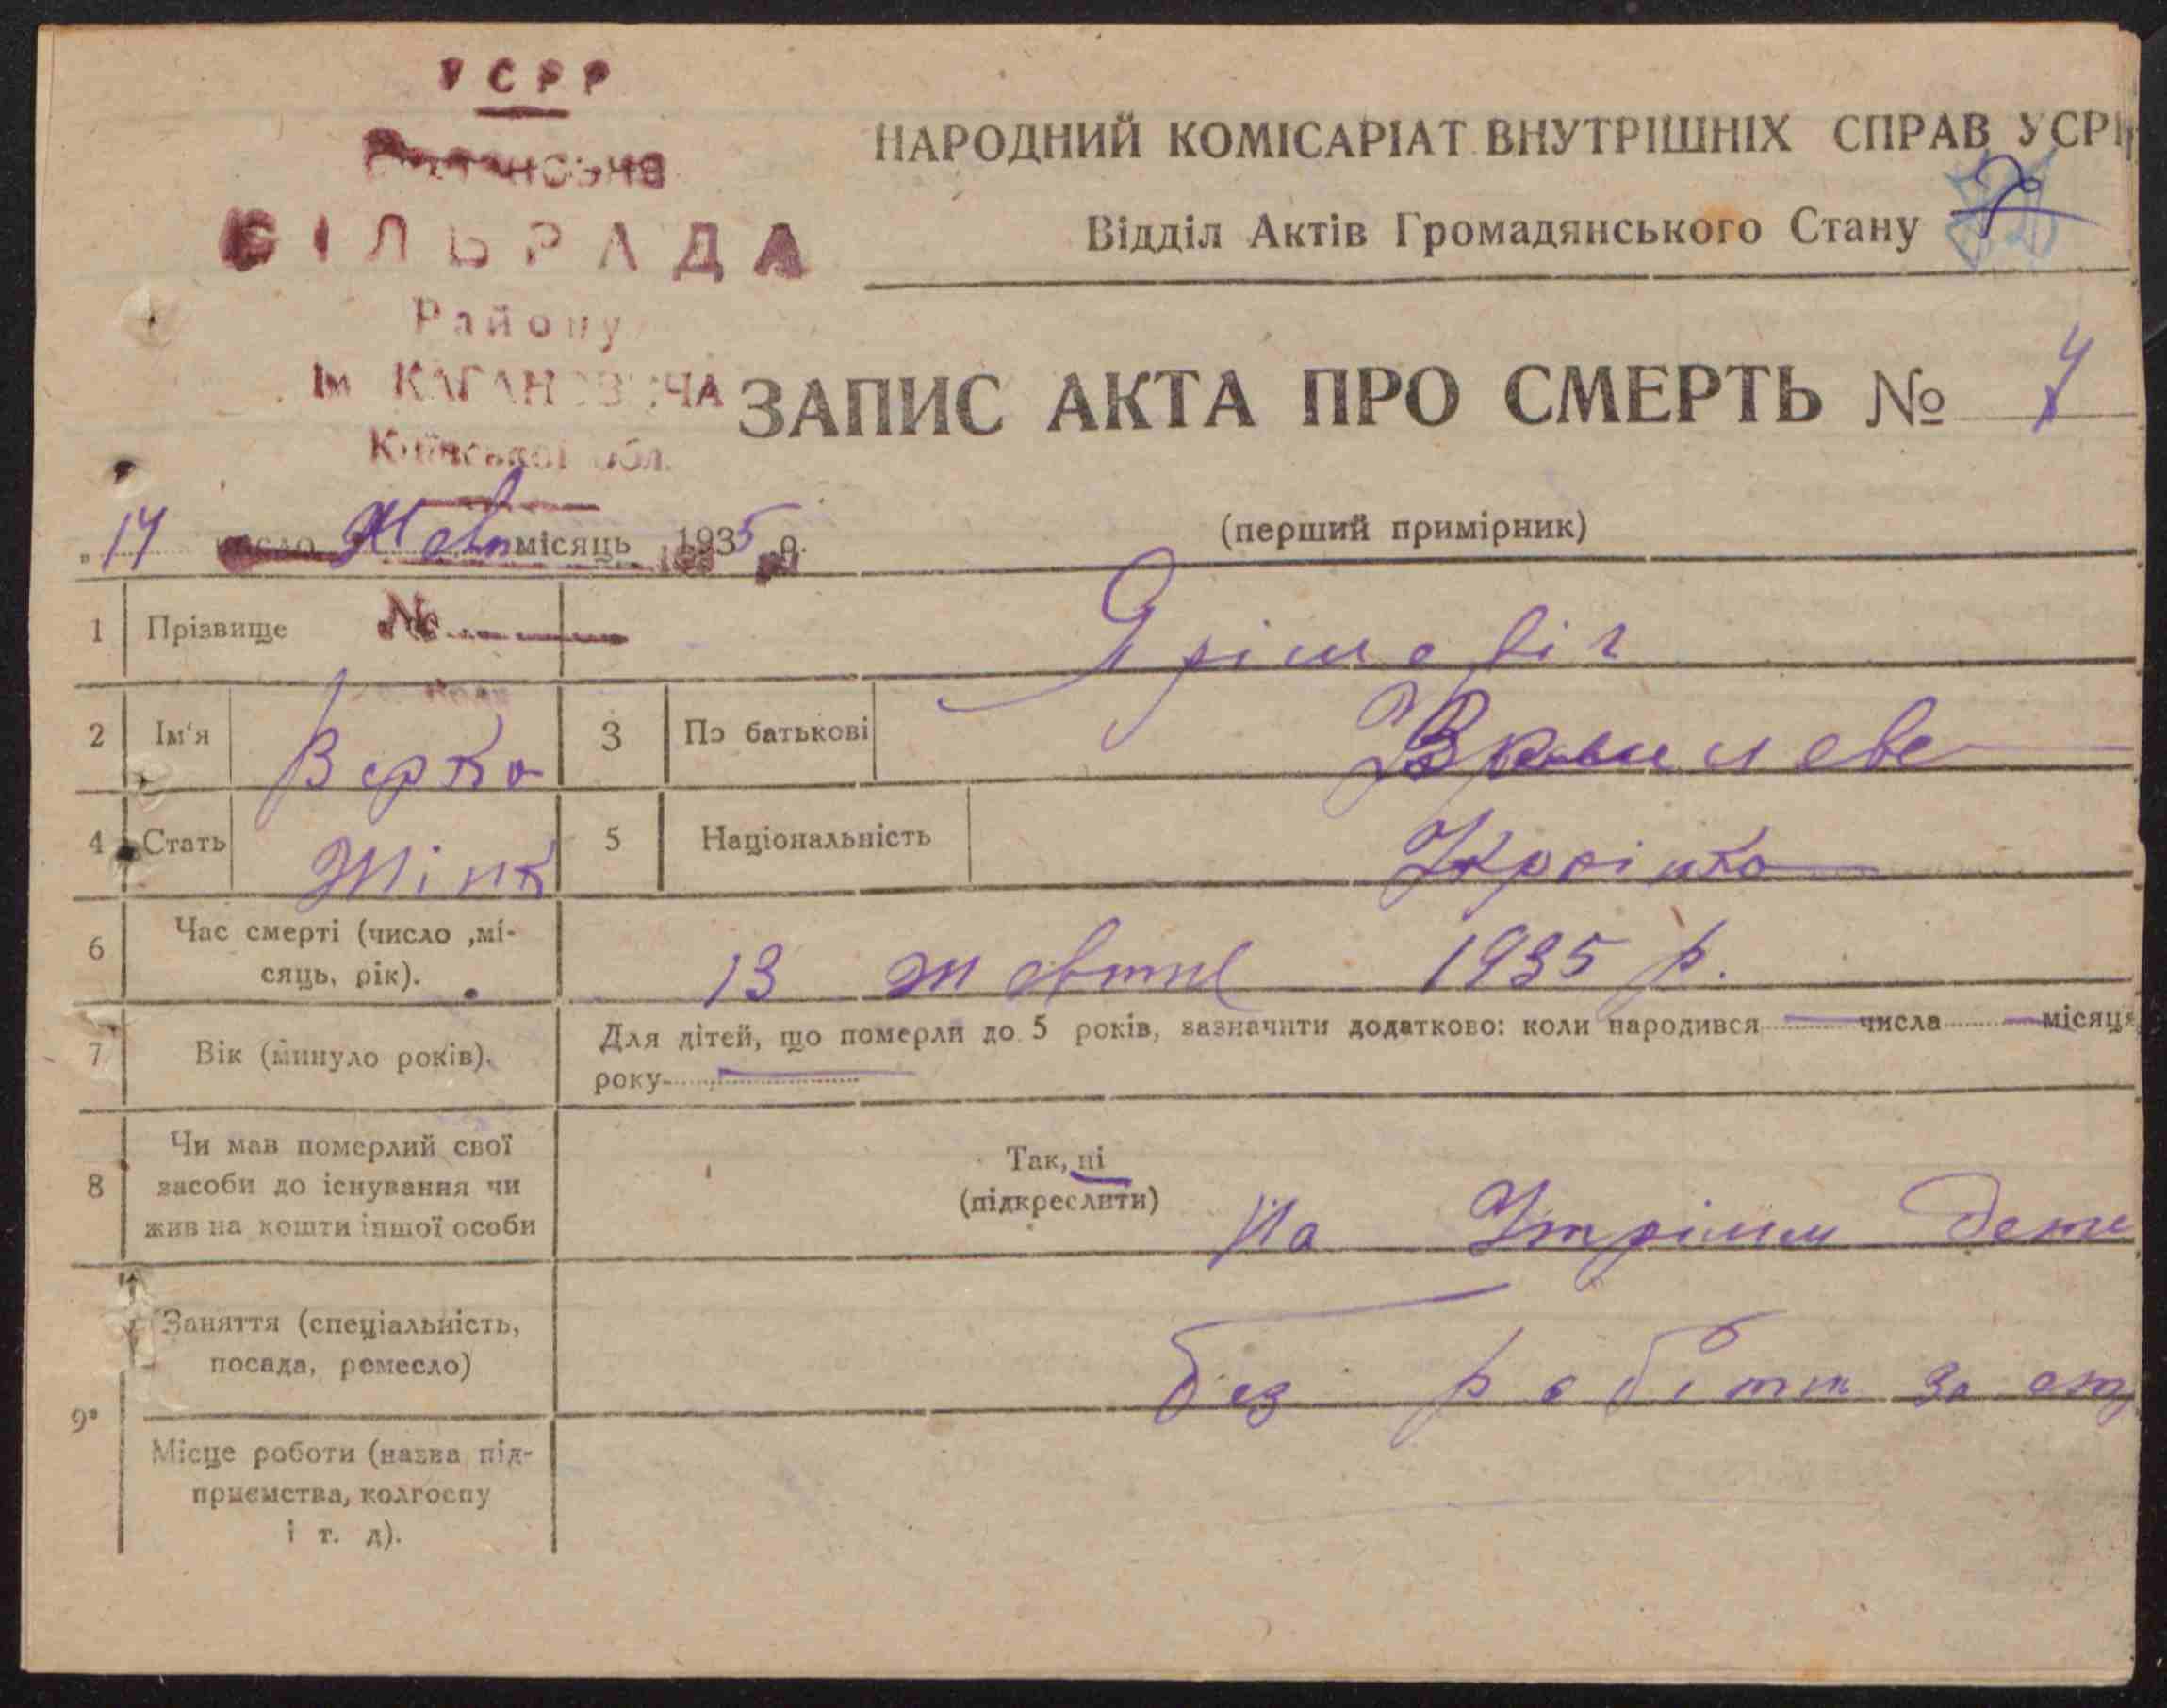 УСРР
СІЛЬРАДА
Району
Ім КАГАНОВИЧА
Київської обл.
НАРОДНИЙ КОМІСАРІАТ ВНУТРІШНІХ СПРАВ УСРР
Відділ Актів Громадянського Стану
ЗАПИС АКТА ПРО СМЕРТЬ №
(перший примірник)
число місяць 1935 р.
1 Прізвище
№
2 Ім'я Верка 3 По батькові
4 Стать Жінк 5 Національність Украінка
6 Час смерті (число ,мі-
сяць, рік). 13 жовтня 1935 р.
7 Вік (минуло років). Для дітей, що померли до 5 років, зазначити додатково: коли народився числа місяця
року
8 Чи мав померлий свої
засоби до існування чи
жив на кошти іншої особи
Так, ні
(підкреслити)
На Утрімы дете
9 Заняття (спеціальність,
посада, ремесло)
без работы за
Місце роботи (назва під-
приємства, колгоспу
і т. д).